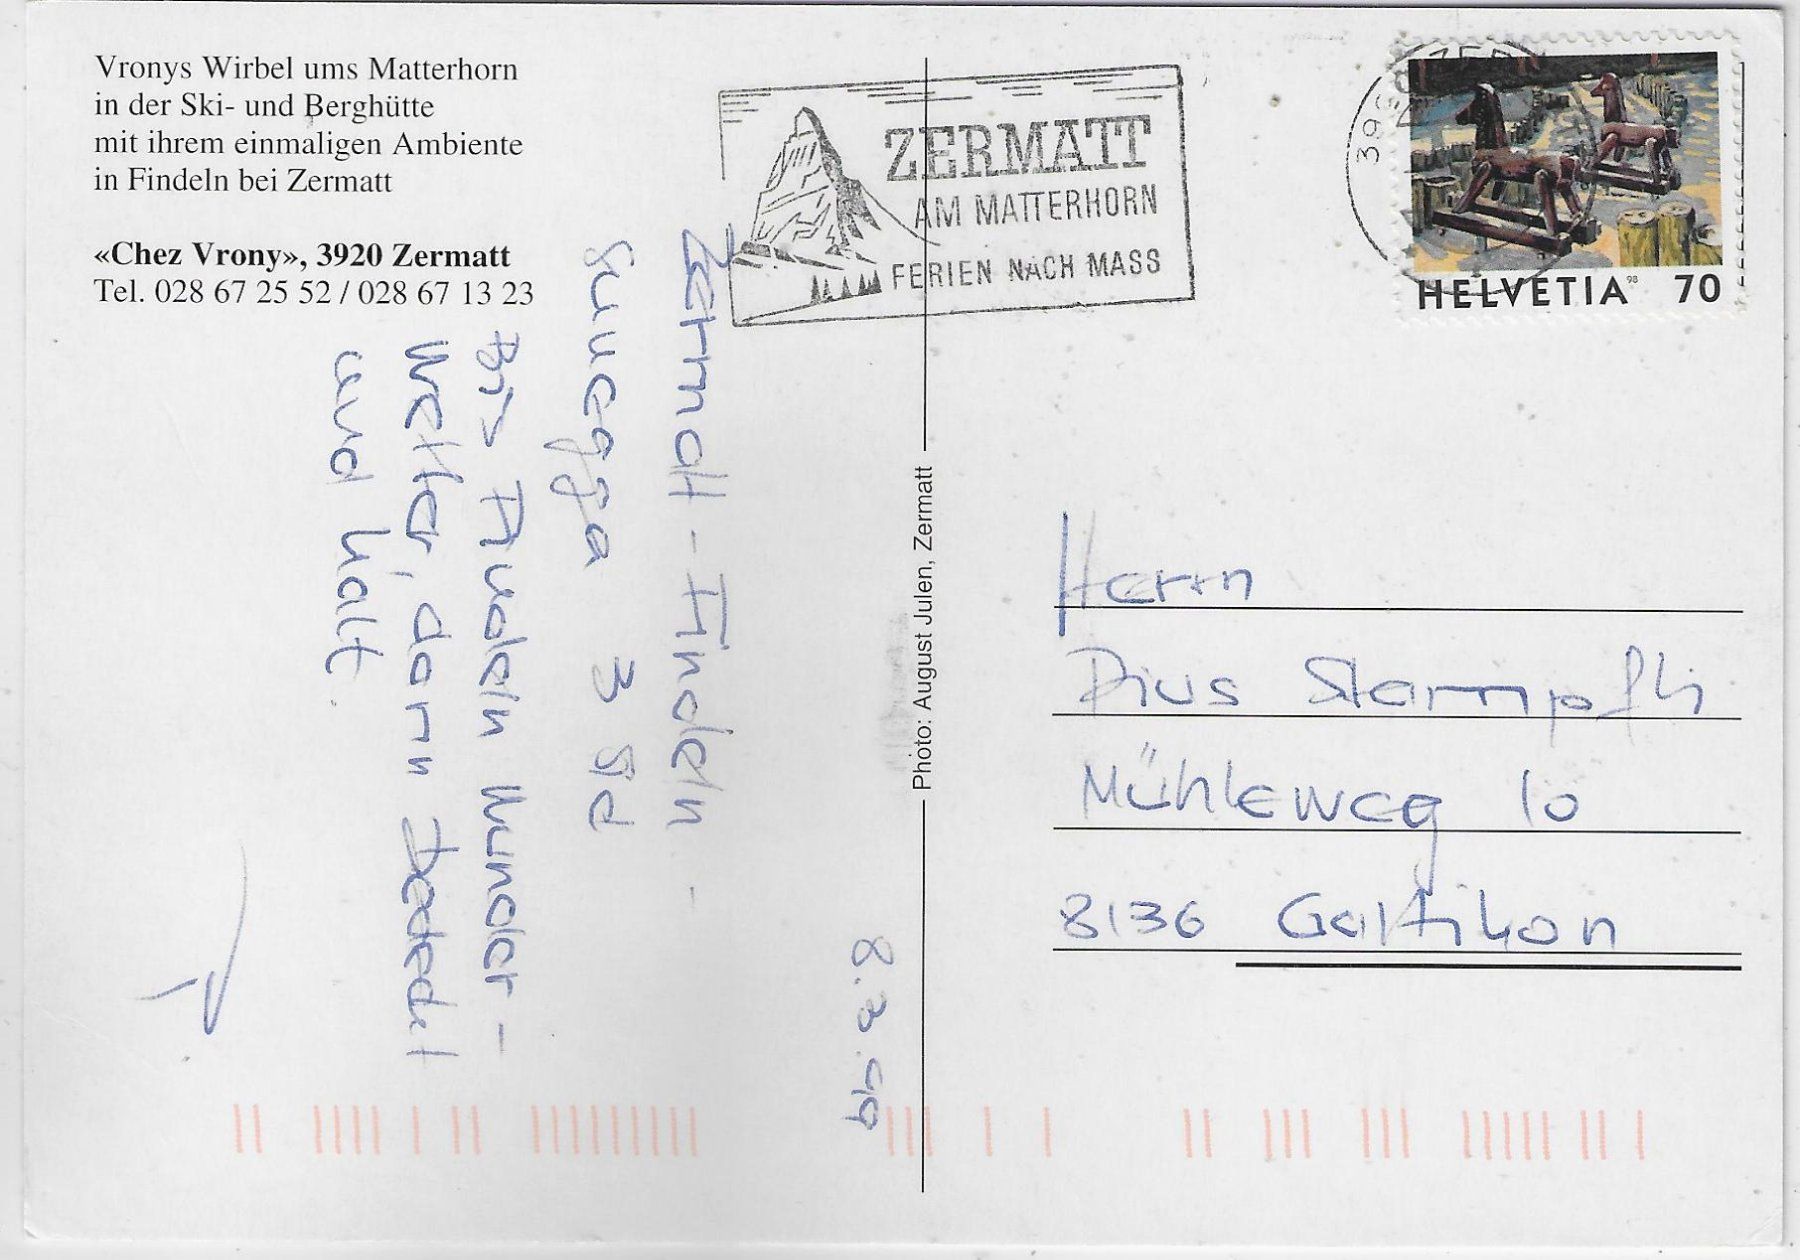 Vronys Wirbel ums Matterhorn
in der Ski- und Berghütte
mit ihrem einmaligen Ambiente
in Findeln bei Zermatt
«Chez Vrony», 3920 Zermatt
Tel. 028 67 25 52 / 028 67 13 23
ZERMATT
AM MATTERHORN
FERIEN NACH MASS
HELVETIA 98 70
8.3.99
Zermatt - Findeln -
Sunegga 3 Std
Bis Findeln Wunder-
wetter, dann
und kalt.
Photo: August Julen, Zermatt
Herrn
Pius Stampfli
Mühleweg 10
8136 Gattikon